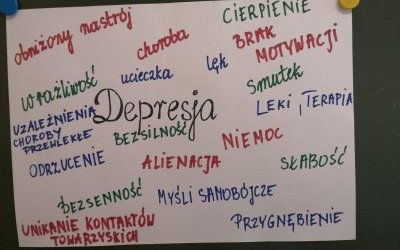 obniżony nastrój
choroba
CIERPIENIE
BRAK
MOTYWACJI
wrażliwość
ucieczka
lęk
Smutek
Depresja
LEKI, TERAPIA
UZALEŻNIENIA
CHOROBY
PRZEWLEKŁE
BEZSILNOŚĆ
NIEMOC
ODRZUCENIE
ALIENACJA
SŁABOŚĆ
BEZSENNOŚĆ
MYŚLI SAMOBÓJCZE
UNIKANIE KONTAKTÓW
TOWARZYSKICH
PRZYGNĘBIENIE